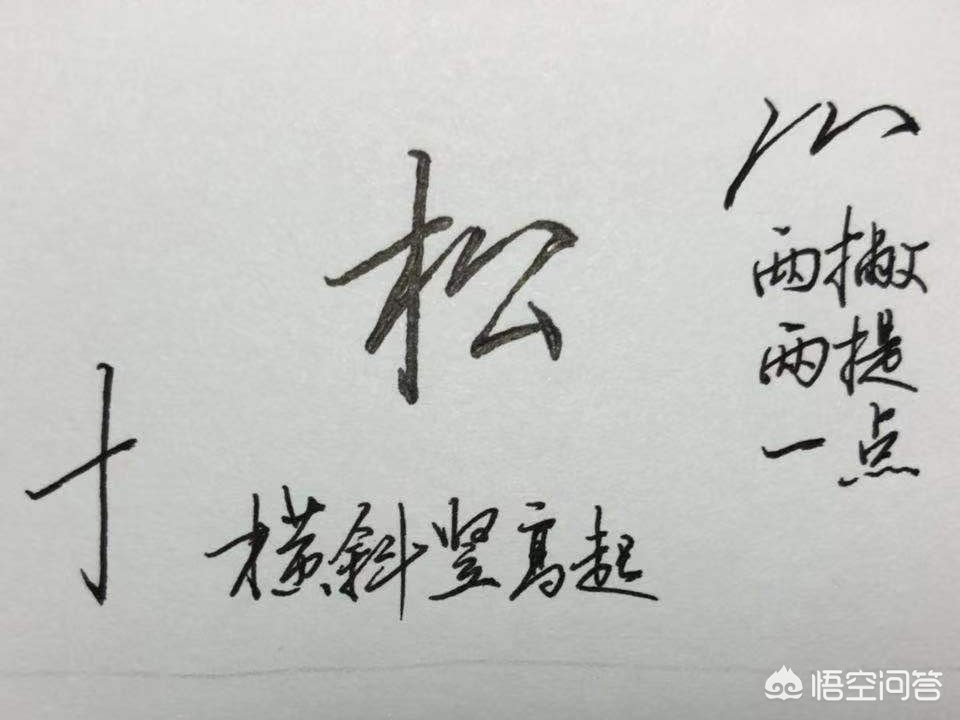 松
两撇
两提
一点
十
横斜竖高起
悟空问答